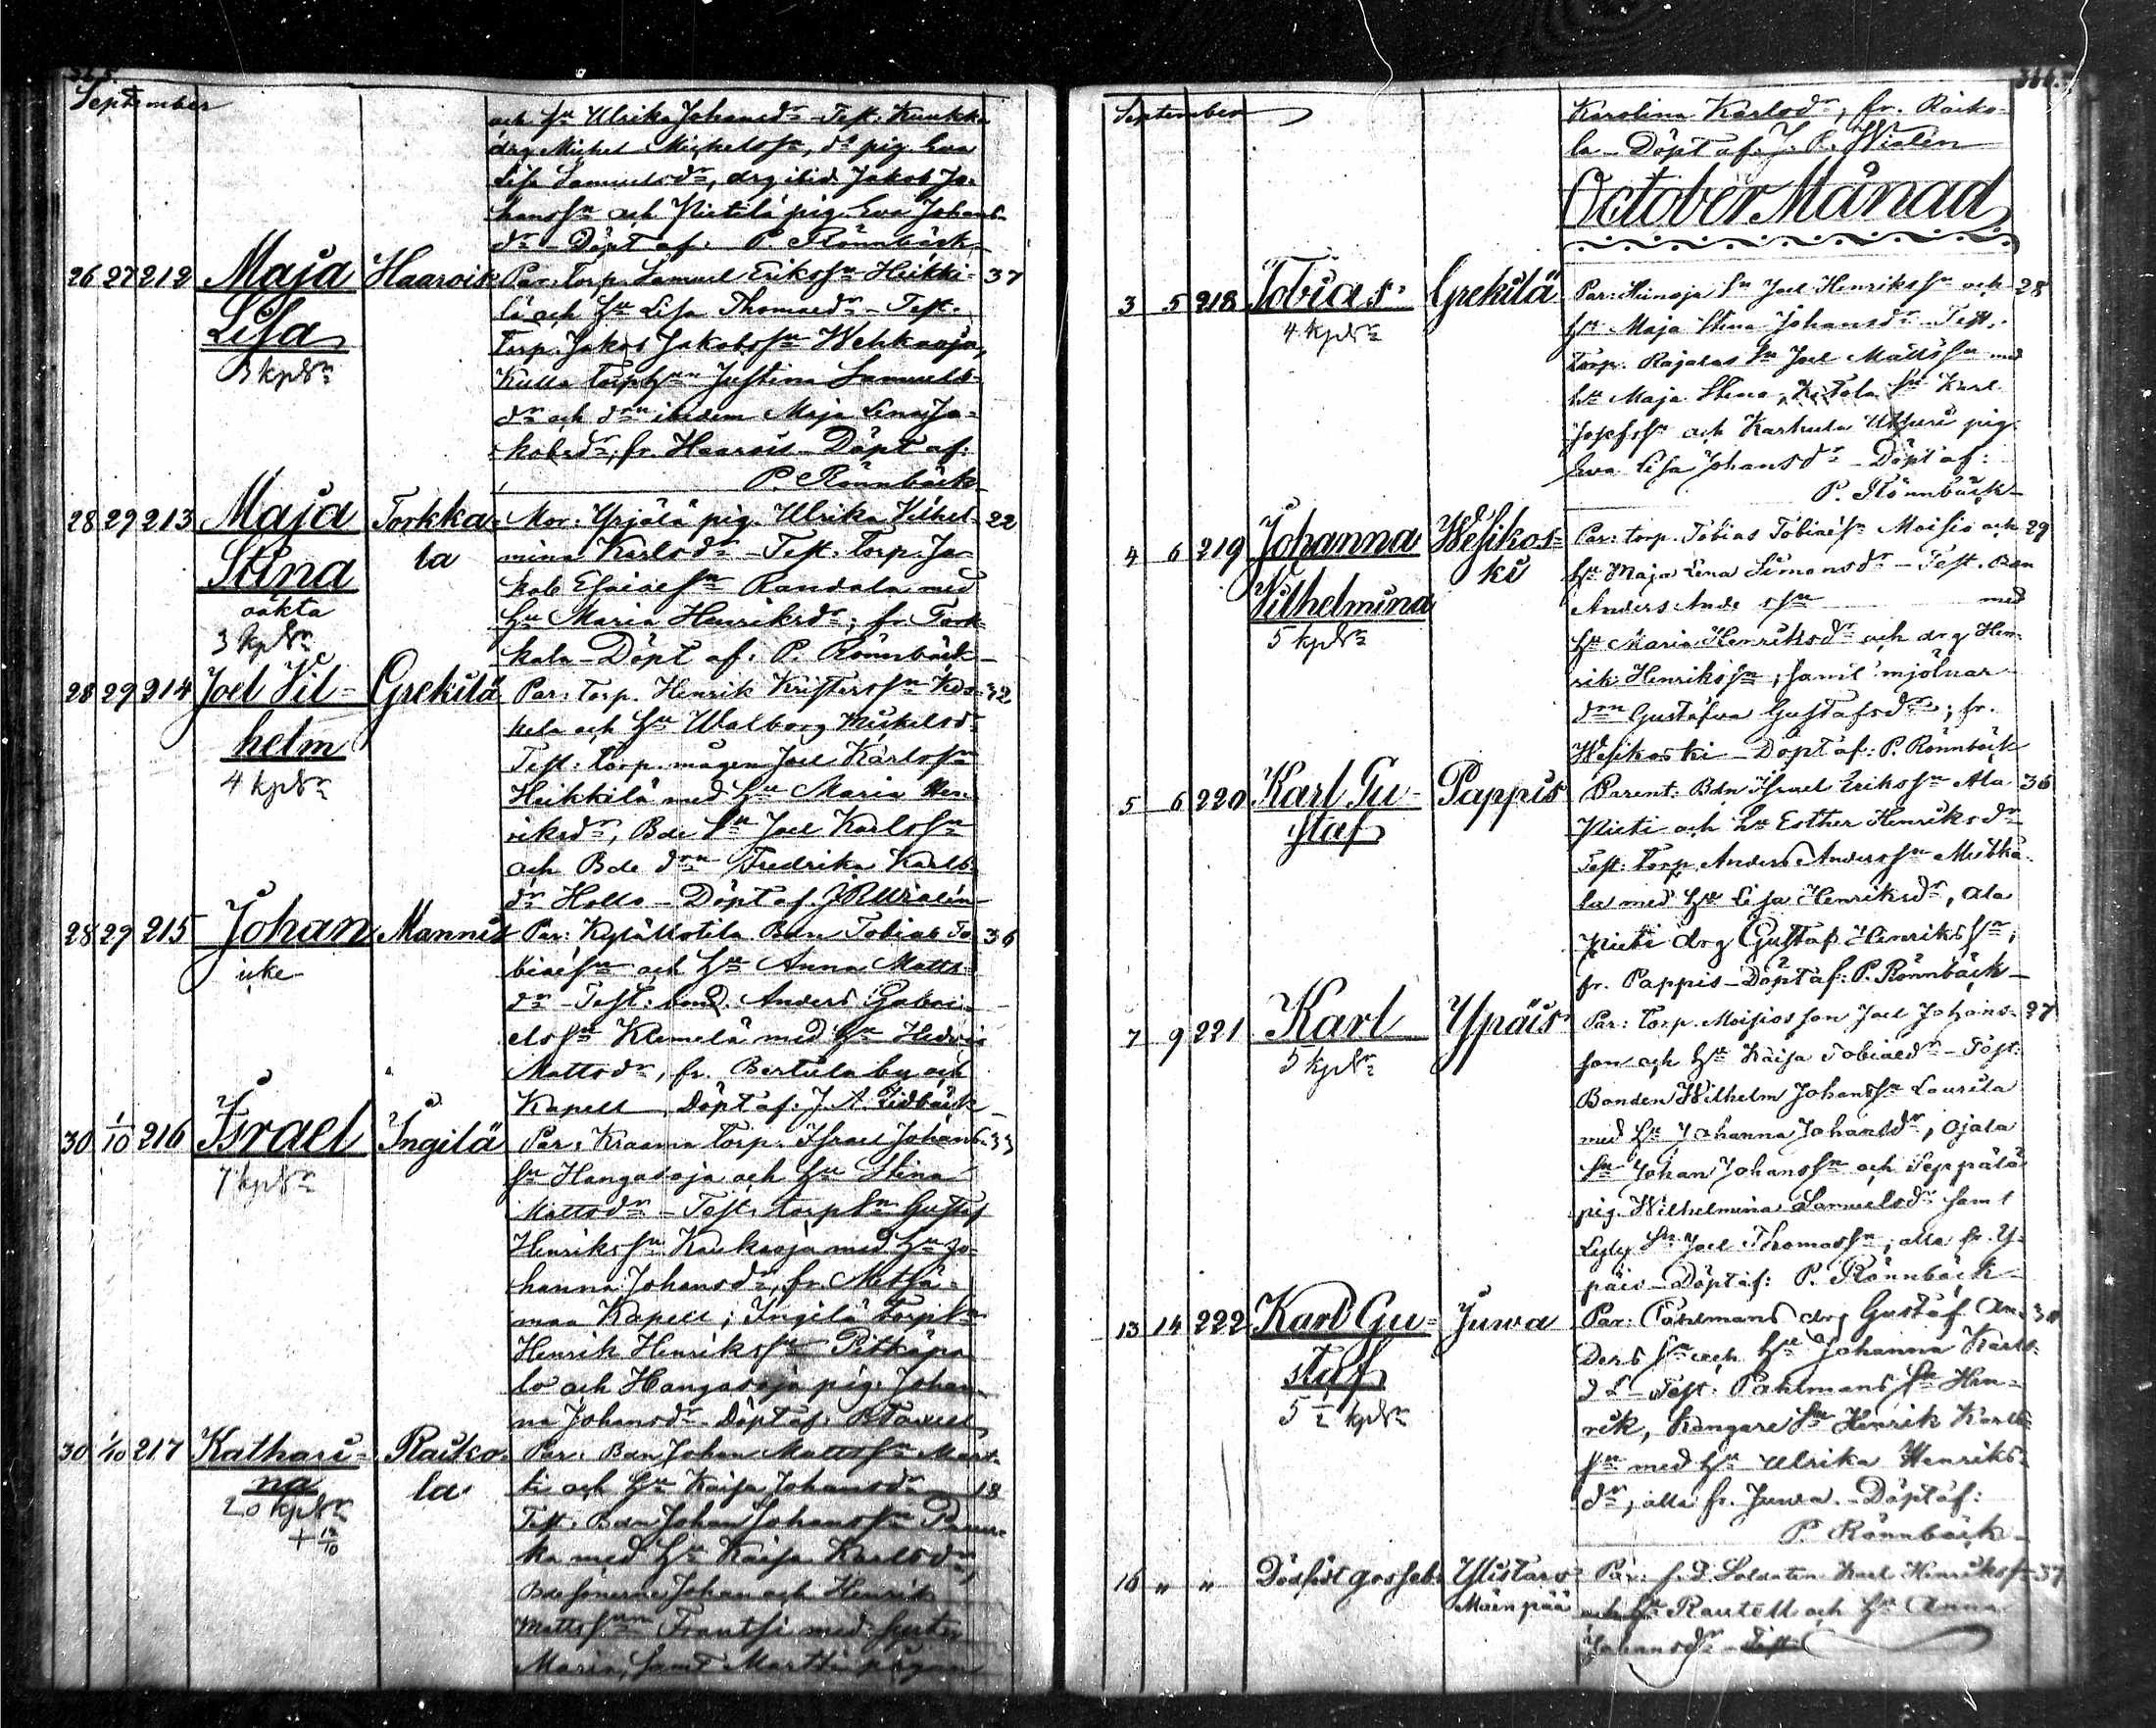 September
och hu Ulrika Johansdr Test: Kuukka
drg Michel Michelssn, do pig. Eva
Lisa Samuelsdr, drg ibid. Jakob Jo-
hanssn och Pietilä pig. Eva Johans-
dr - Döpt af: P. Rönnbäck
26 27 212 Maja Haarois Par: torp. Samuel Erikssn Heikki- 37
Lisa lä och hu Lisa Thomasdr - Test:
Torp. Jakob Jakobssn Wehkaoja,
3 kpr Kulla torp. hun Justina Samuels-
dr och drn ibidem Maja Lena Ja-
kobsdr, fr. Haarois - Döpt af:
P. Rönnbäck
28 29 213 Maja Torkka- Mor: Yrjälä pig. Ulrika Vilhel- 22
Stina la mina Karlsdr - Test: Torp. Ja-
oäkta kob Esaiaesn Randala med
3 kpr hu Maria Henriksdr; fr. Tork-
kala - Döpt af: P. Rönnbäck
28 29 214 Joel Vil- Grekilä Par: Torp. Henrik Kristerssn Kos- 32
helm kela och hu Walborg Mickelsdr
4 kpr Test: torp. mågen Joel Karlssn
Heikkilä med hu Maria Hen-
riksdr, Bde sn Joel Karlssn
och Bde drn Fredrika Karls-
dr Hollo - Döpt af. J. R. Wialén
28 29 215 Johan Mannis Par: Kylä Kotila Bdn Tobias To- 36
icke biaesn och hu Anna Matts-
dr - Test: bond. Anders Gabri-
elssn Klemelä med hu Hedvig
Mattsdr, fr. Bertula by och
Kapell Döpt af: J. A. Lidbäck
30 1/10 216 Israel Ingilä Par: Kraama torp. Israel Johans- 33
7 kpr sn Hangasoja och hu Stina
Mattsdr - Test: torp sn Gustaf
Henrikssn Kaukaoja med hu Jo-
hanna Johansdr, fr. Metsä-
maa Kapell; Ingilä torp sn
Henrik Henrikssn Pitkäpa
lo och Hangasoja pig: Johan-
na Johansdr - Döpt af:
30 1/10 217 Kathari- Raiko- Par: Bdn Johan Mattssn Mart-
na la ti och hu Kaisa Johansdr 18
20 kpr Test: Bdn Johan Johanssn
+ 12/10 ka med hu Kaisa Karlsdr,
Bde sönerne Johan och Henrik
Mattssnm Frantsi med syster
Maria, samt Martti pigan
September 366.
Karolina Karlsdr, fr. Raiko-
la - Döpt af: J. R. Wialén
October Månad
3 5 218 Tobias Grekilä Par: Hiinoja sn Joel Henrikssn och 28
4 kpr hu Maja Stina Johansdr - Test:
torp. Rajalas sn Joel Mattssn med
hu Maja Stina, Kitola sn Karl
Josefssn och Karhula Uthuri pig.
Eva Lisa Johansdr - Döpt af:
P. Rönnbäck
4 6 219 Johanna Wesikos- Par: torp. Tobias Tobiaesn Moisio och 29
Vilhelmina ki hu Maja Lena Simonsdr - Test. Bdn
5 kpr Anders Ande ssn med
hu Maria Henriksdr och drg Hen-
rik Henrikssn, samt mjölnar
drn Gustafva Gustafsdr; fr.
Wesikoski - Döpt af: P. Rönnbäck
5 6 220 Karl Gu- Pappis Parent: Bdn Israel Erikssn Ala 36
staf Pieti och hu Esther Henriksdr
Test: torp. Anders Anderssn Mutka-
la med hu Lisa Henriksdr, Ala
Pieti drg Gustaf Henrikssn;
fr. Pappis - Döpt af: P. Rönnbäck
7 9 221 Karl Ypäis Par: Torp. Moisios son Joel Johans- 27
5 kpr son och hu Kaisa Tobiaedr - Test:
Bonden Wilhelm Johanssn Laurila
med hu Johanna Johansdr, Ojala
sn Johan Johanssn och Seppälä
pig. Wilhelmina Samuelsdr samt
Lyly sn Joel Thomassn, alla fr. Y-
päis - Döpt af: P. Rönnbäck
13 14 222 Karl Gu- Juwa Par: Påhlmans drg Gustaf An- 30
staf derssn och hu Johanna Karls-
5 1/2 kpr dr - Test: Påhlmans sn Hen-
rik, Kangare sn Henrik Karls-
sn med hu Ulrika Henriks-
dr, alla fr. Juwa. - Döpt af:
P. Rönnbäck
16 " " Dödfödt gosseb. Ylistaro Par: f.d. Soldaten Karl Henrikssn 37
Mäenpää och hu Rautell och hu Anna
Johansdr - Test: